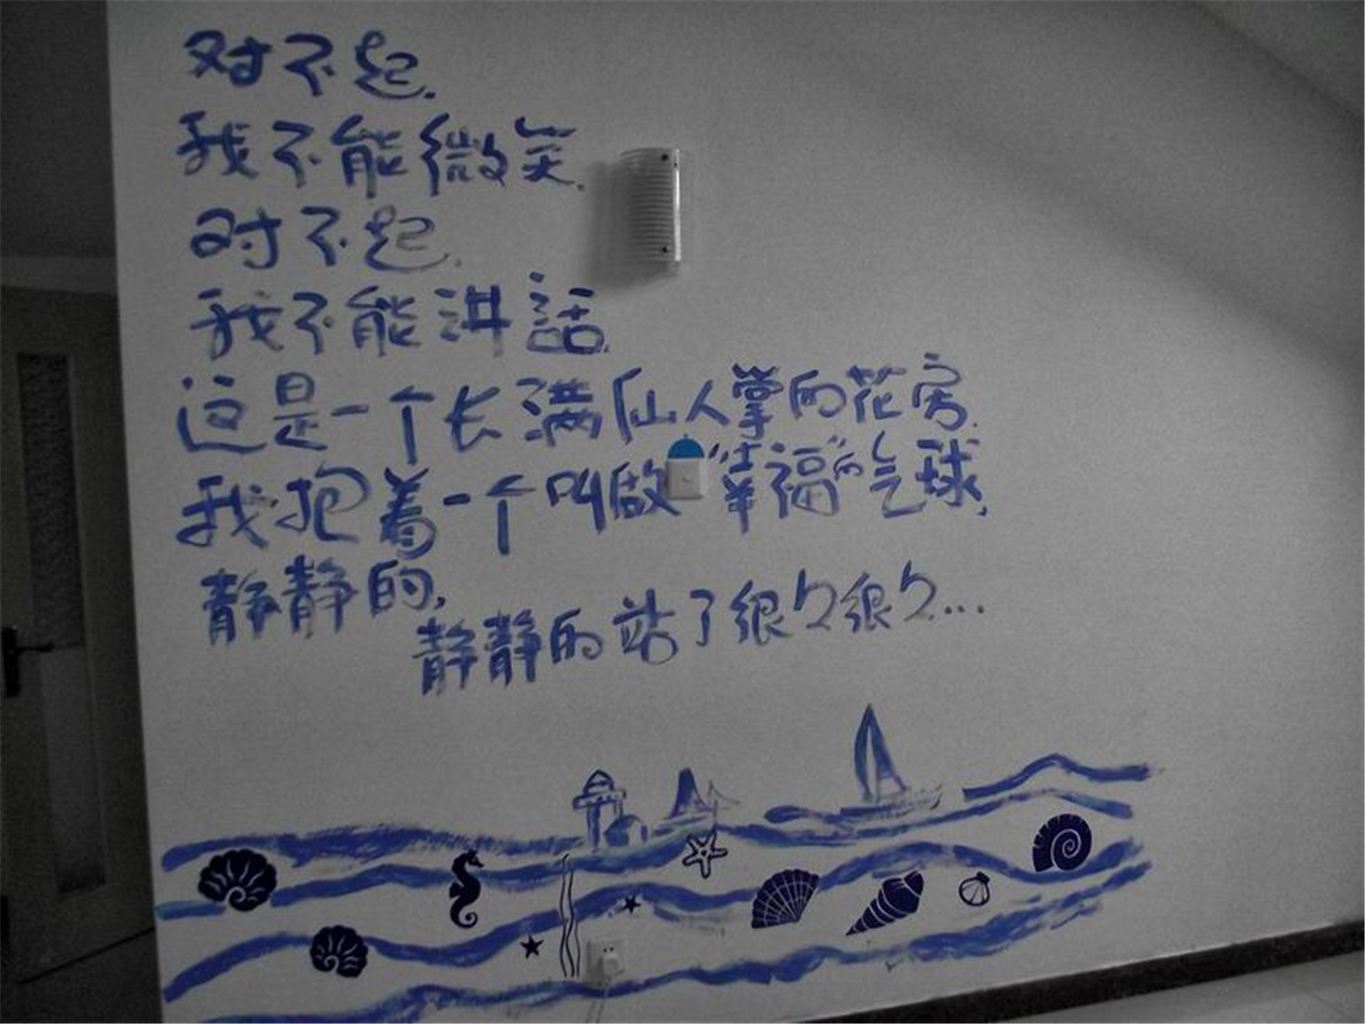 对不起.
我不能微笑.
对不起.
我不能讲話.
这是一个长满仙人掌的花房.
我抱着一个叫做“幸福”的气球,
静静的,
静静的站了很久很久...